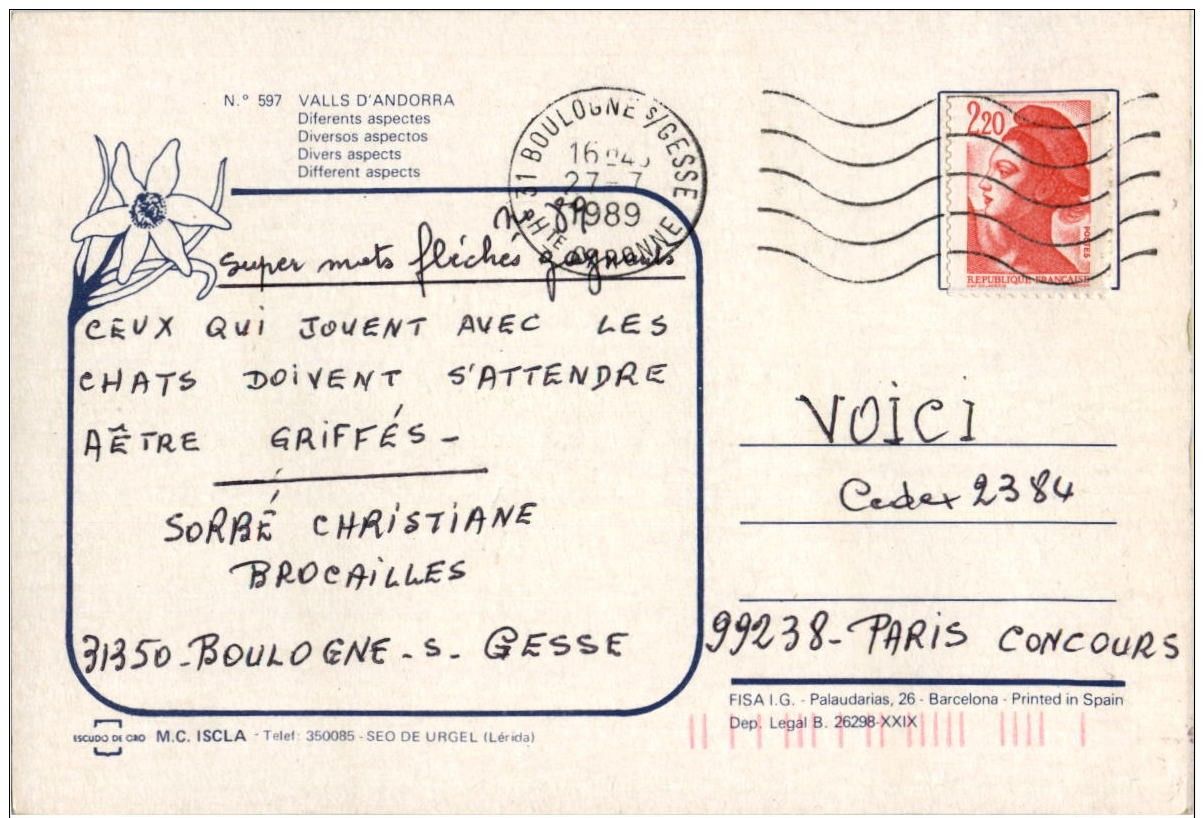 N.º 597 VALLS D'ANDORRA
Diferents aspectes
Diversos aspectos
Divers aspects
Different aspects
31 BOULOGNE S/GESSE
27-7
1989
HTE GARONNE
2,20
POSTES
REPUBLIQUE FRANÇAISE
No 89
Super mots fléchés gagnants
CEUX QUI JOUENT AVEC LES
CHATS DOIVENT S'ATTENDRE
A ÊTRE GRIFFÉS -
SORBÉ CHRISTIANE
BROCAILLES
31350 - BOULOGNE - S - GESSE
VOICI
Cedex 2384
99238 - PARIS CONCOURS
FISA I.G. - Palaudarias, 26 - Barcelona - Printed in Spain
Dep. Legal B. 26298-XXIX
ESCUDO DE ORO M.C. ISCLA - Telef: 350085 - SEO DE URGEL (Lérida)